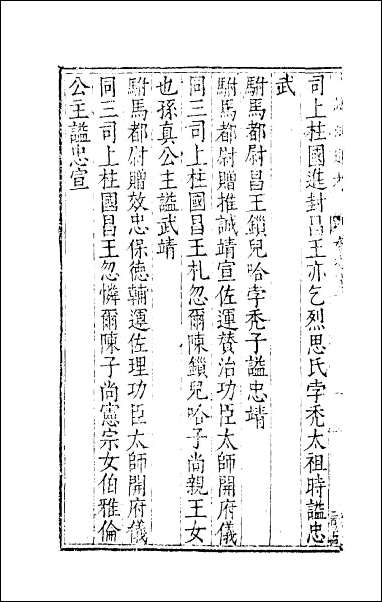 司上柱國進封昌王亦乞烈思氏孛禿太祖時謚忠
武
駙馬都尉昌王鎖兒哈孛禿子謚忠靖
駙馬都尉贈推誠靖宣佐運賛治功臣太師開府儀
同三司上柱國昌王札忽爾陳鎖兒哈子尚親王女
也孫真公主謚武靖
駙馬都尉贈效忠保德輔運佐理功臣太師開府儀
同三司上柱國昌王忽憐爾陳子尚憲宗女伯雅倫
公主謚忠宣